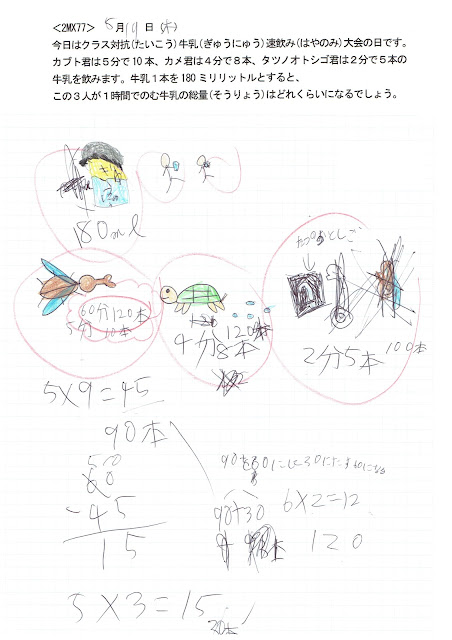 <2MX77> 5月19日(木)
今日はクラス対抗(たいこう)牛乳(ぎゅうにゅう)速飲み(はやのみ)大会の日です。
カブト君は5分で10本、カメ君は4分で8本、タツノオトシゴ君は2分で5本の
牛乳を飲みます。牛乳1本を180ミリリットルとすると、
この3人が1時間でのむ牛乳の総量(そうりょう)はどれくらいになるでしょう。
180ml
60分120本
5分10本
120本
4分8本
2分5本
100本
5×9=45
90本
60
-45
15
90+30
6×2=12
120
5×3=15
20本